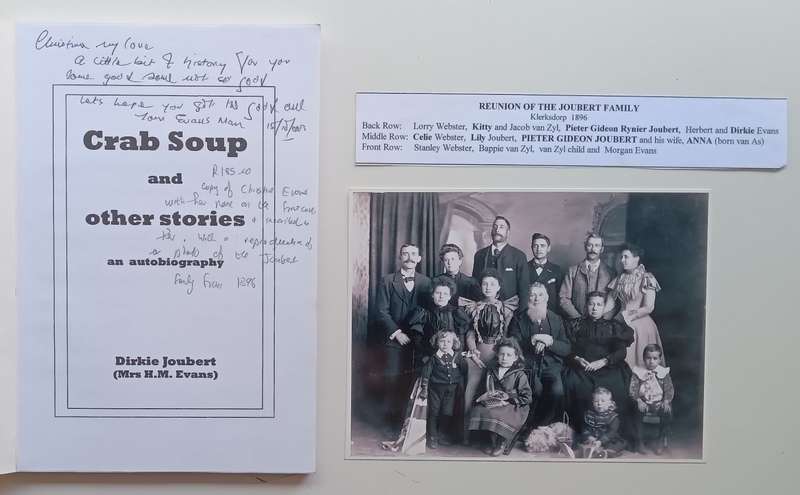 Christina my love
a little bit of history for you
Some good some not so good
Lets hope you get the good out
Your Evans Man
Crab Soup
R185.00
and
Copy of Christine Evans
with her name on the
other stories
inscribed to
her, with a reproduction of
a photo of the Joubert
an autobiography
family from 1896
Dirkie Joubert
(Mrs H.M. Evans)
REUNION OF THE JOUBERT FAMILY
Klerksdorp 1896
Back Row: Lorry Webster, Kitty and Jacob van Zyl, Pieter Gideon Rynier Joubert, Herbert and Dirkie Evans
Middle Row: Celie Webster, Lily Joubert, PIETER GIDEON JOUBERT and his wife, ANNA (born van As)
Front Row: Stanley Webster, Bappie van Zyl, van Zyl child and Morgan Evans